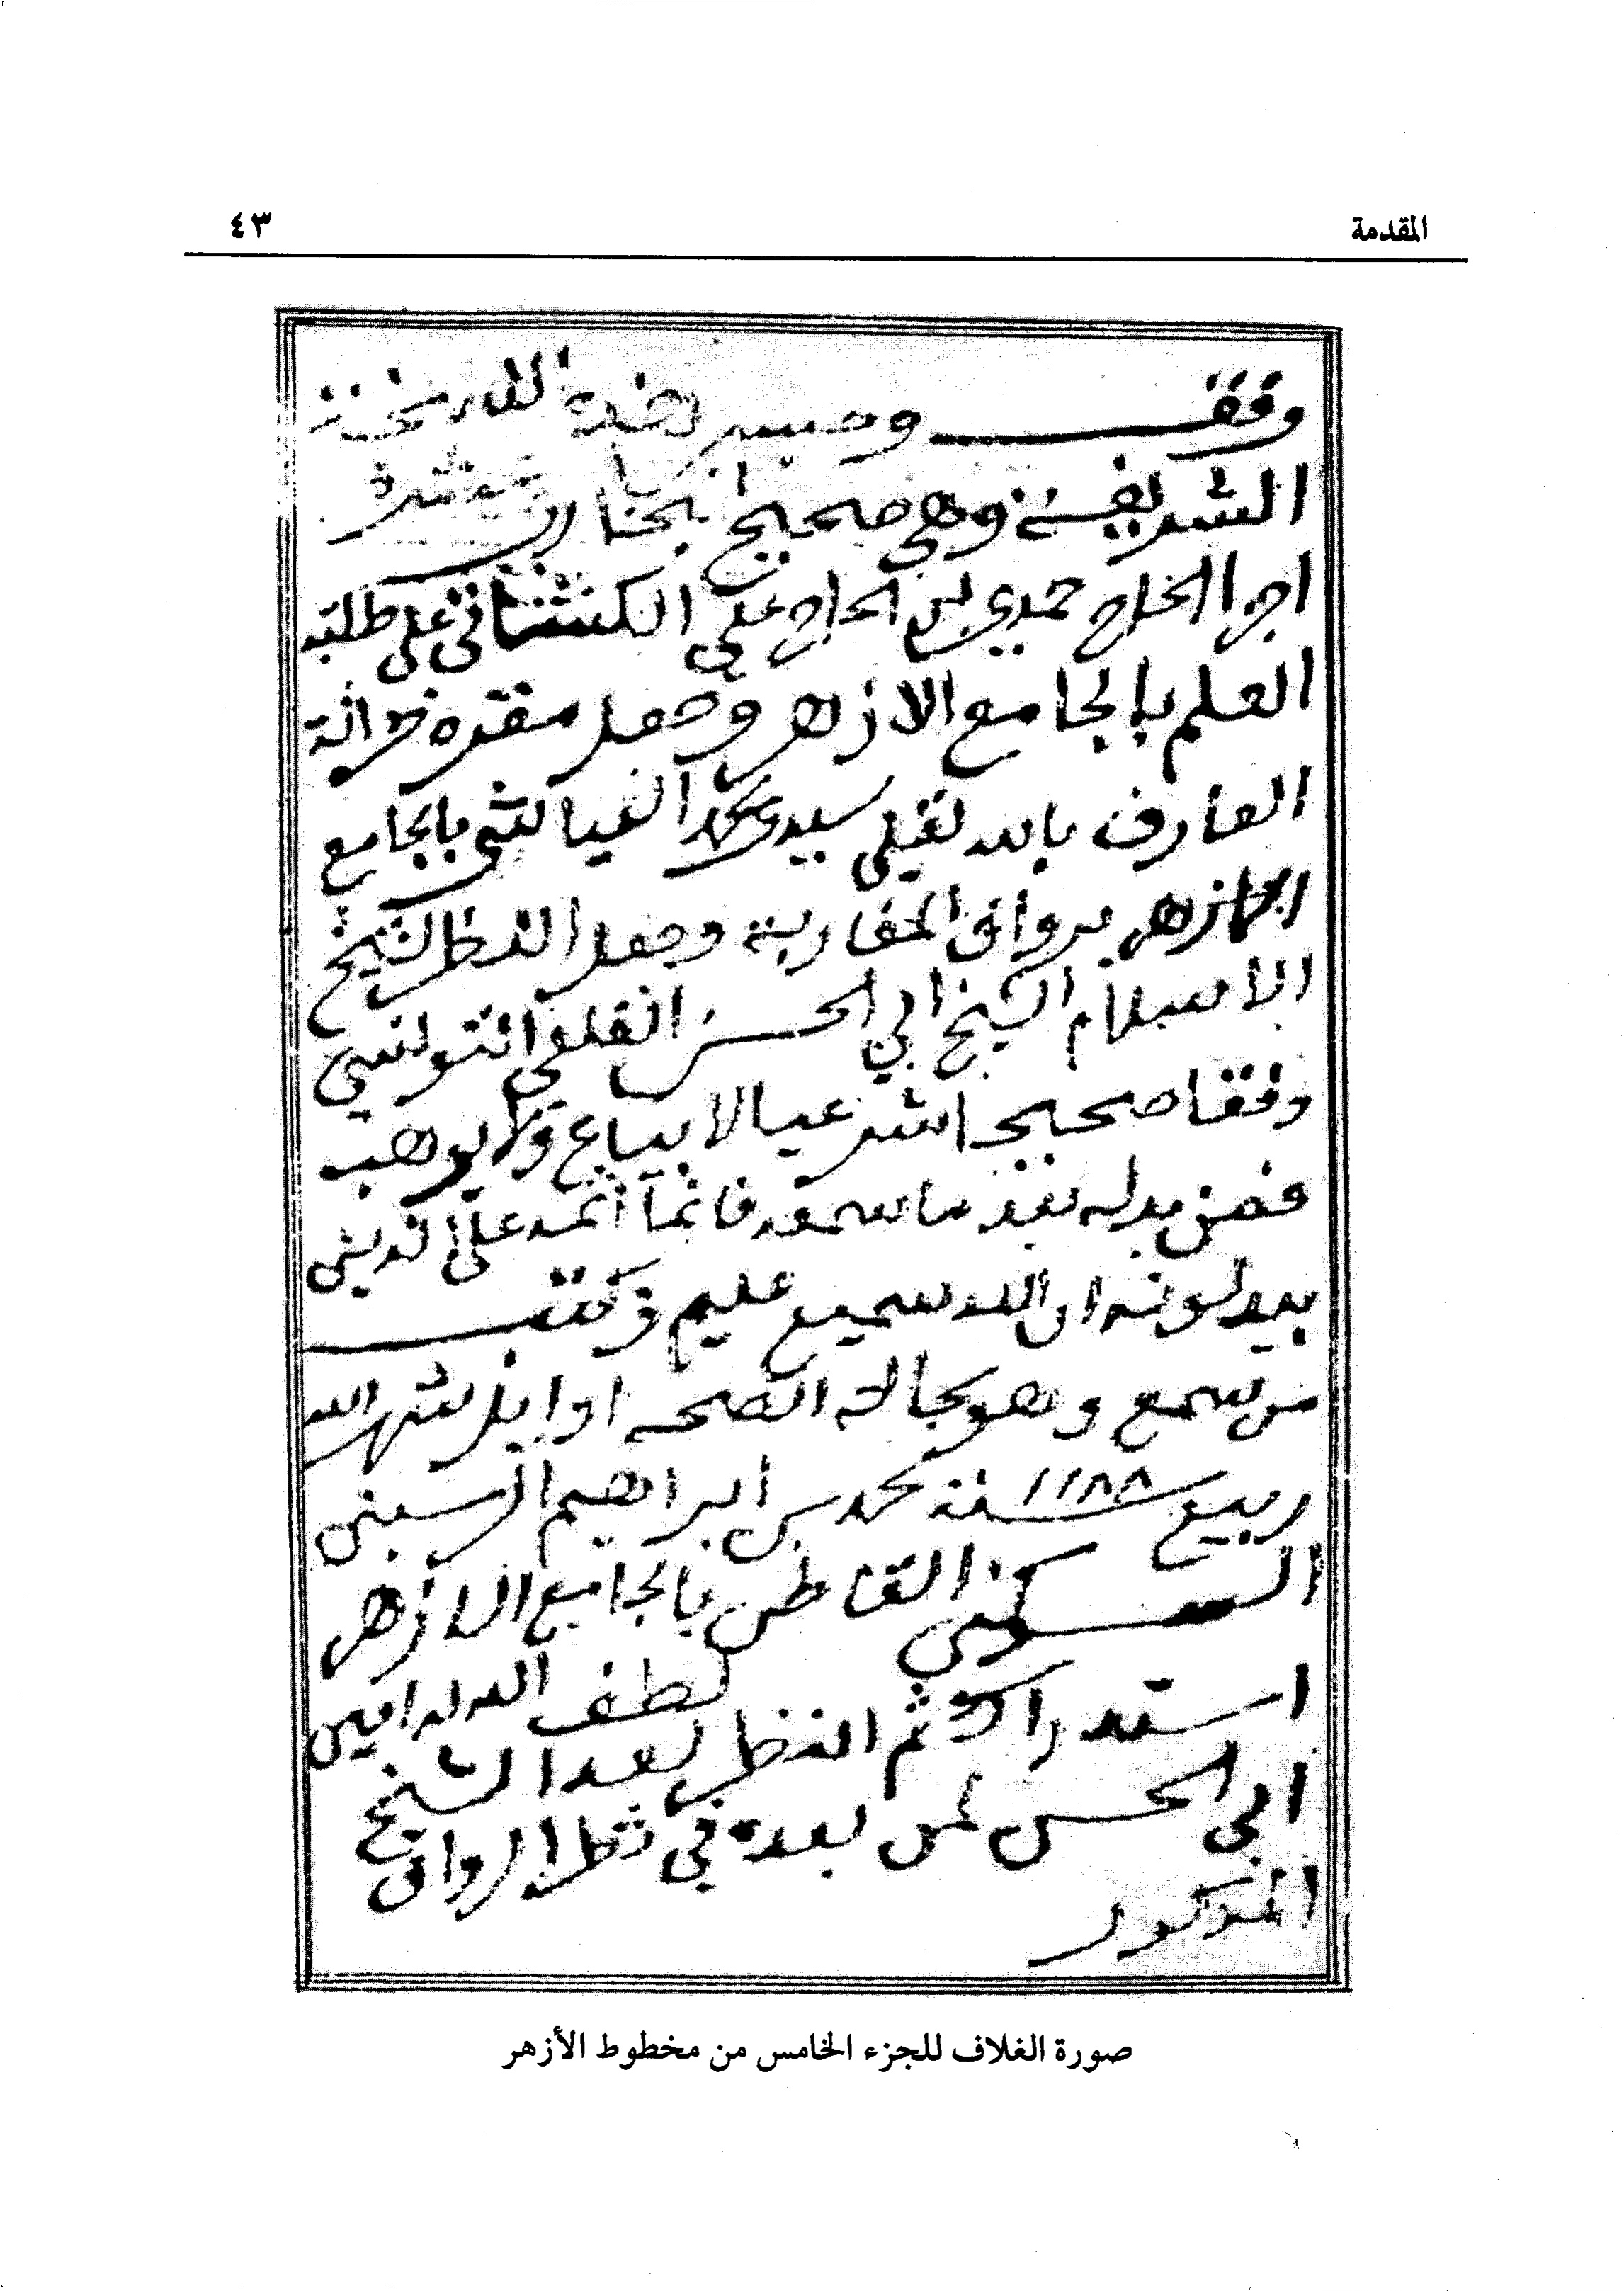 المقدمة
٤٣
وقف وحبس هذه
الشريفة وهي صحيح البخاري
اجزا الحاج حمدي بن الحاج علي على طلبة
العلم بالجامع الازهر وجعل مقره خزانة
العارف بالله تعلى سيدي محمد بالجامع
الازهر برواق المغاربة وجعل النظر لشيخ
الاسلام الشيخ ابي الحسن القلعي التونسي
وقفا صحيحا شرعيا لا يباع ولا يوهب
فمن بدله بعد ما سمعه فانما اثمه على الذين
يبدلونه ان الله سميع عليم وكتب
من سمع وهو بحالة الصحه اوايل شهر الله
ربيع سنة ١١٨٨ محمد بن ابراهيم
القاطن بالجامع الازهر
لطف الله له امين
استدراك ثم النظر بعد الشيخ
ابي الحسن لمن بعده في نظر الرواق
المذكور
صورة الغلاف للجزء الخامس من مخطوط الأزهر